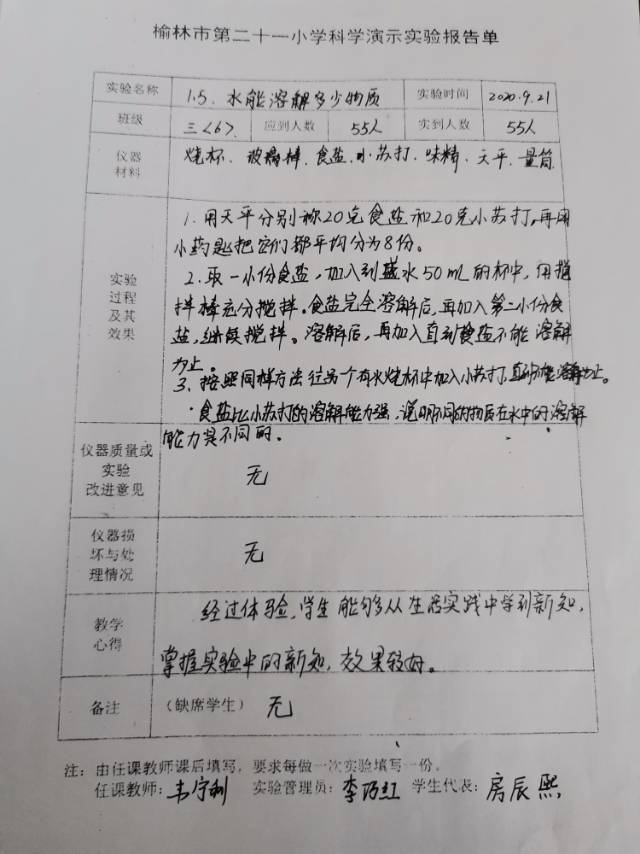 榆林市第二十一小学科学演示实验报告单
实验名称 1.5. 水能溶解多少物质 实验时间 2020.9.21
班级 三<6> 应到人数 55人 实到人数 55人
仪器材料 烧杯、玻璃棒、食盐、小苏打、味精、天平、量筒
实验过程及其效果
1. 用天平分别称20克食盐和20克小苏打,再用
小药匙把它们都平均分为8份。
2. 取一小份食盐,加入到盛水50mL的杯中,用搅
拌棒充分搅拌。食盐完全溶解后,再加入第二小份食
盐,继续搅拌。溶解后,再加入直到食盐不能溶解
为止。
3、按照同样方法往另个有水烧杯中加入小苏打,直到不能溶解为止。
·食盐比小苏打的溶解能力强,说明不同的物质在水中的溶解
能力是不同的。
仪器质量或实验改进意见 无
仪器损坏与处理情况 无
教学心得
经过体验,学生能够从生活实践中学到新知,
掌握实验中的新知,效果较好。
备注 (缺席学生) 无
注:由任课教师课后填写,要求每做一次实验填写一份。
任课教师: 实验管理员:李巧红 学生代表:房辰熙